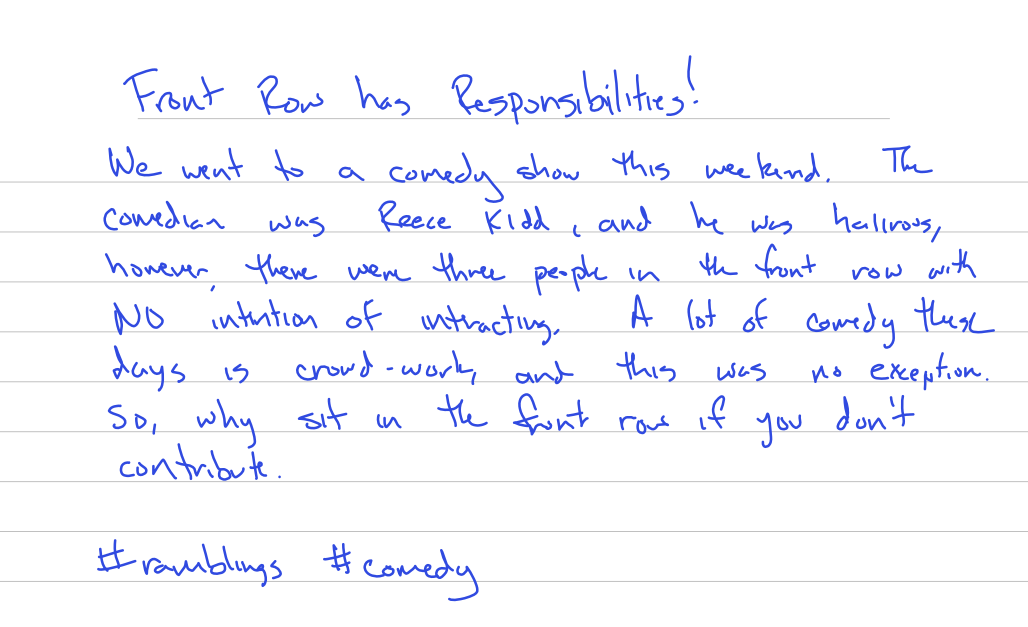 Front Row has Responsibilities!
We went to a comedy show this weekend. The
comedian was Reece Kidd, and he was halirous,
however, there were three people in the front row with
NO intention of interacting. A lot of comedy these
days is crowd-work, and this was no exception.
So, why sit in the front row if you don't
contribute.
#ramblings #comedy